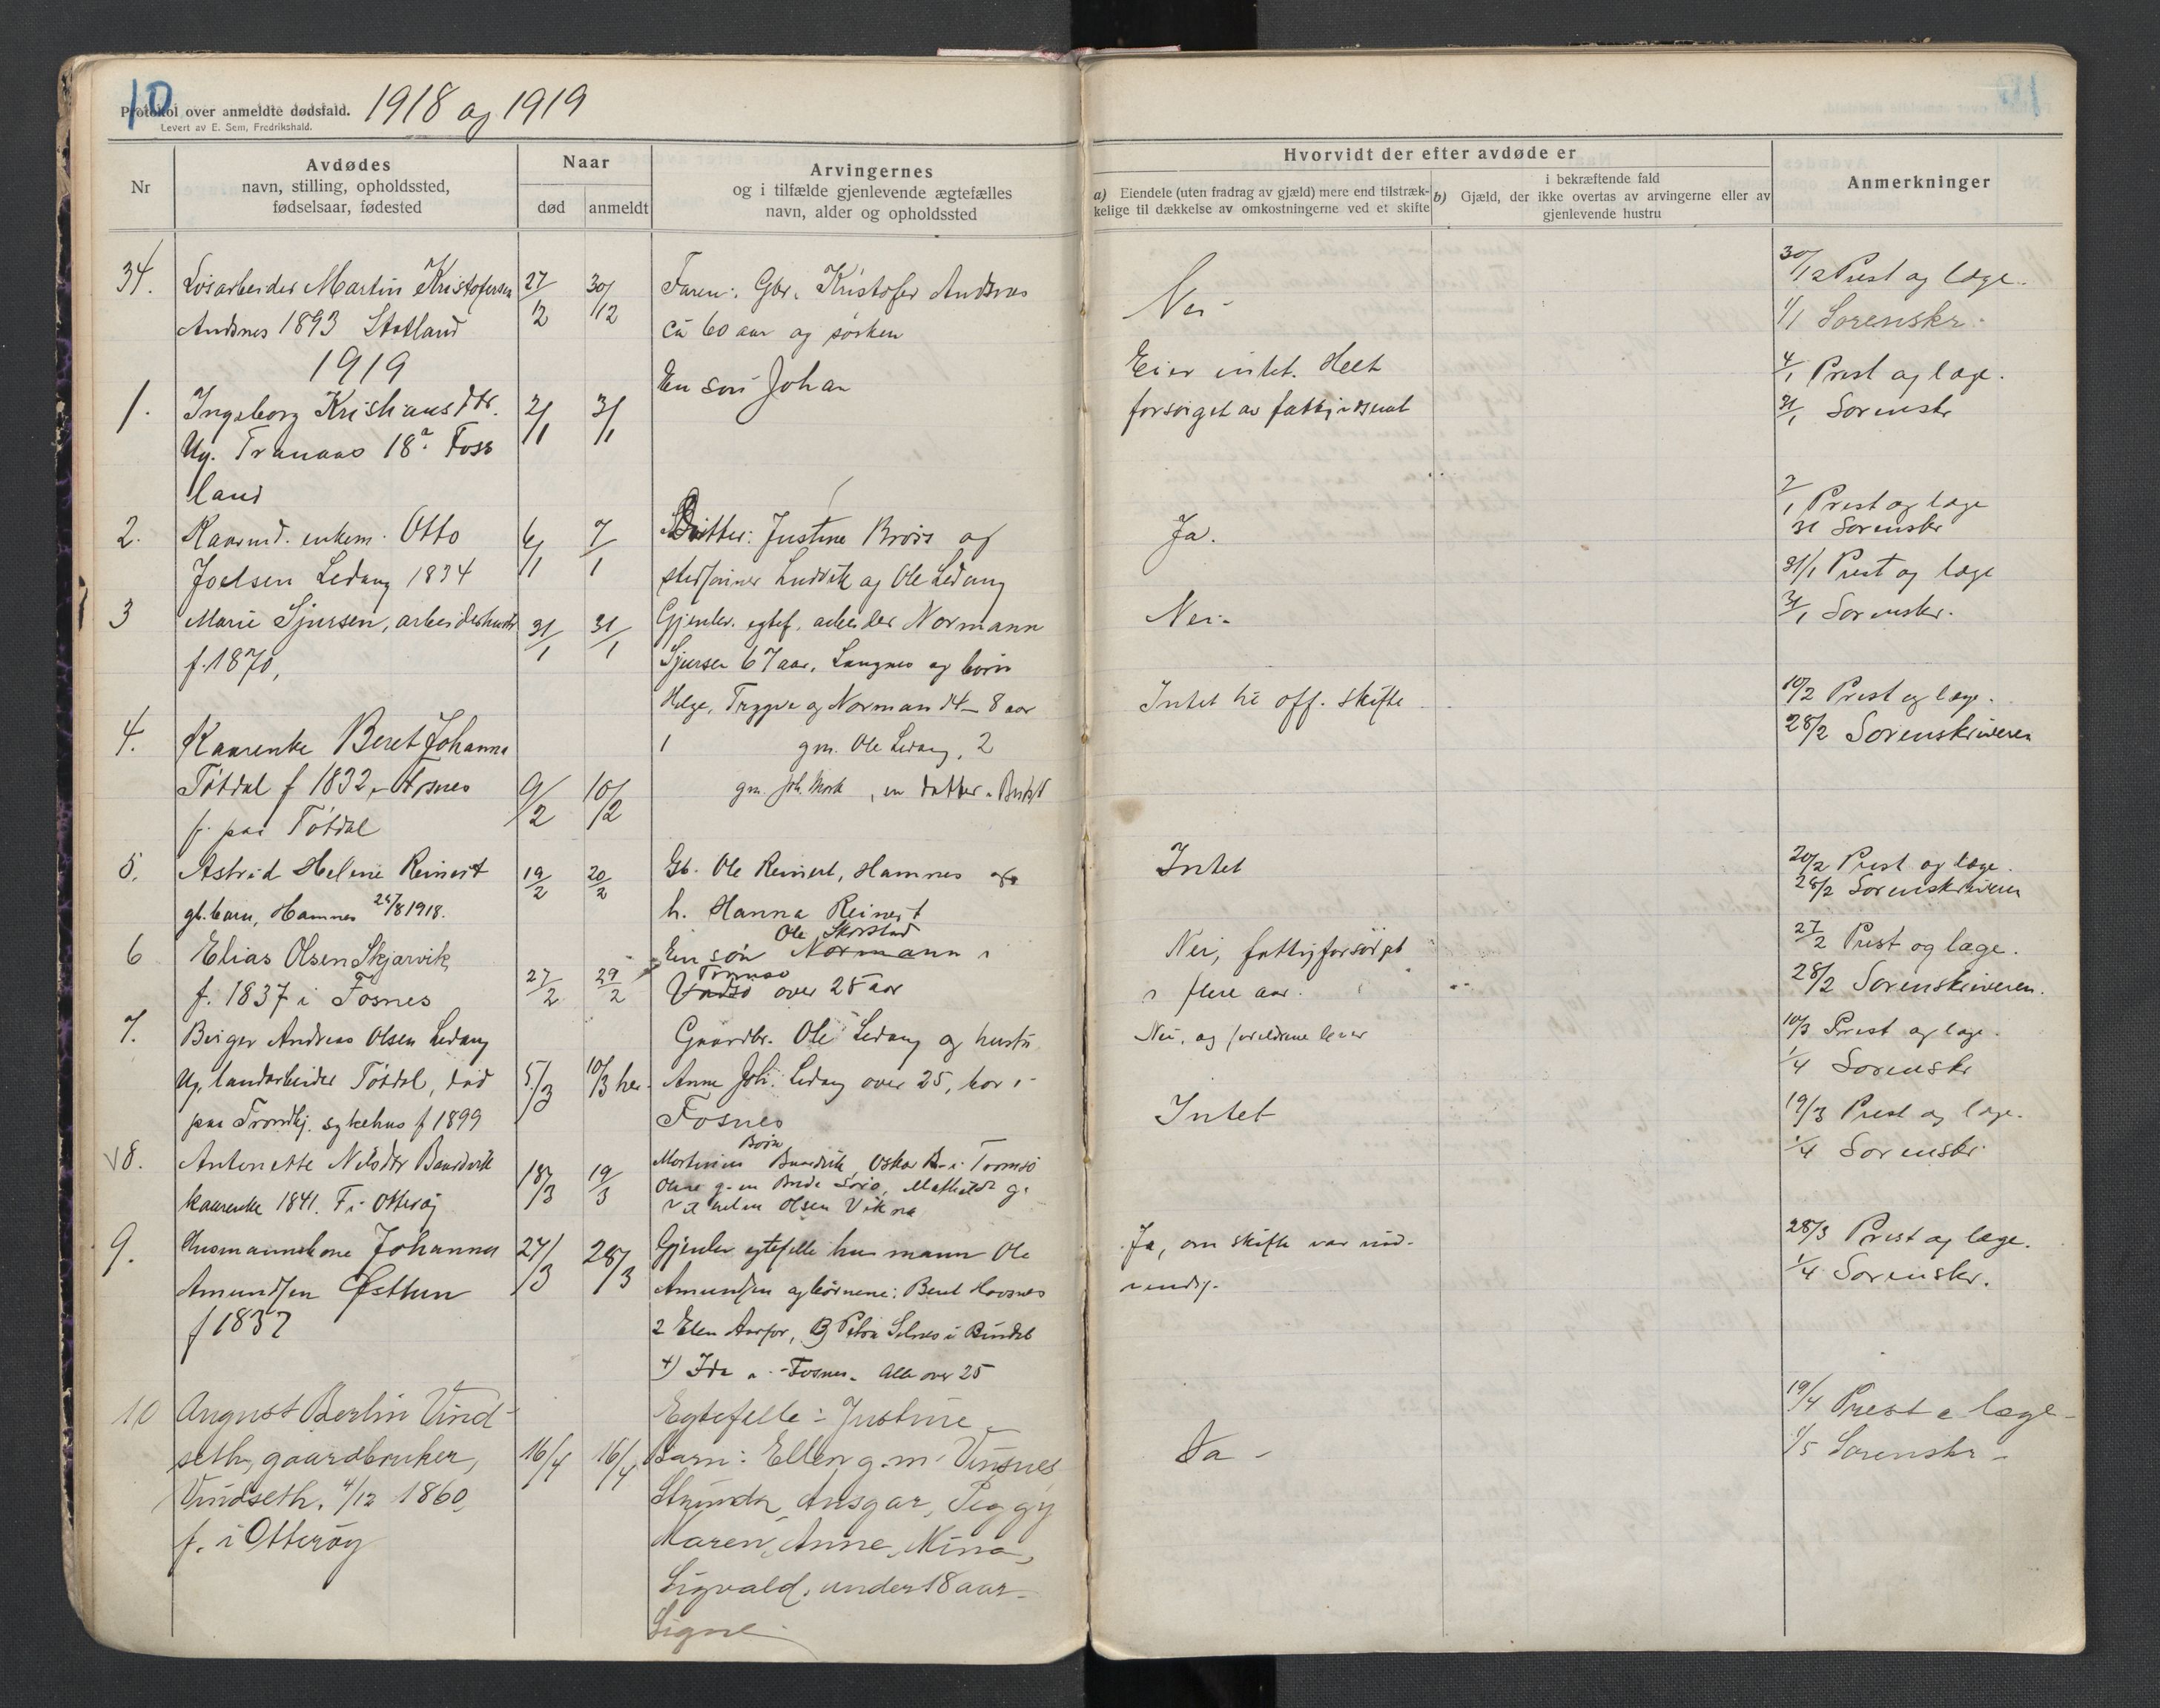 10
Protokol over anmeldte dødsfald. 1918 og 1919
Levert av E. Sem, Fredrikshald.
Nr
Avdødes
navn, stilling, opholdssted,
fødselsaar, fødested
Naar
død
anmeldt
Arvingernes
og i tilfælde gjenlevende ægtefælles
navn, alder og opholdssted
Hvorvidt der efter avdøde er
a) Eiendele (uten fradrag av gjæld) mere end tilstræk-
kelige til dækkelse av omkostningerne ved et skifte
i bekræftende fald
b) Gjæld, der ikke overtas av arvingerne eller av
gjenlevende hustru
Anmerkninger
34. Løsarbeider Martin Kristofersen
Andsnes 1893 Statland
27/12
30/12
Faren: Gbr. Kristofer Andsnes
ca 60 aar og søsken
Nei
30/12 Prest og læge.
1/1 Sorenskr.
1919
1. Ingeborg Kristiansdtr.
Ug. Tranaas 18 Foss
land
2/1
3/1
En søn Johan
Eier intet. Helt
forsørget av
4/1 Prest og læge.
31/1 Sorenskr
2. Kaarmd. enkem. Otto
Joelsen Ledang 1834
6/1
7/1
Datter: Justine Brøis og
Ludvik og Ole Ledang
Ja.
7/1 Prest og læge
31 Sorenskr
3 Marie Sjursen, arbeiderhustr
f. 1870,
31/1
31/1
Gjenlev. egtef. arbeider Normann
Sjursen 67 aar, Langnes og børn
Helge, Trygve og Norman 14-8 aar
Nei.
31/1 Prest og læge
31/1 Sorenskr.
4. Kaarenke Beret Johanna
Tøtdal f 1832, Fosnes
f. paa Tøtdal
9/2
10/2
1 gm. Ole Ledang, 2
gm. Joh. Mork, en datter
Intet til off. skifte
10/2 Prest og læge.
28/2 Sorenskriveren
5. Astrid Helene Reinert
gb. barn, Hamnes 28/8 1918.
19/2
20/2
Gb. Ole Reinert, Hamnes og
h. Hanna Reinert
Intet
20/2 Prest og læge.
28/2 Sorenskriveren
6 Elias Olsen Skjarvik,
f. 1837 i Fosnes
27/2
29/2
Ole Skorstad
En søn Normann i
Tromsø
Vadsø over 25 aar
Nei, fattigforsørget
i flere aar.
27/2 Prest og læge.
28/2 Sorenskriveren.
7. Birger Andreas Olsen Ledang
Ug. landarbeider Tøtdal, død
paa Trondhj. sykehus f 1899
5/3
10/3 her
Gaardbr. Ole Ledang og hustr
Anne Joh. Ledang over 25, bor i
Fosnes
Nei, og foreldrene lever
10/3 Prest og læge.
1/4 Sorenskr
8. Antonette Nilsdtr Baardvik
kaarenke 1841. F. i Otterøy
18/3
19/3
Børn
Baardvik, Oskar B. i Tromsø
Mathilde g.
Olsen Vikna
Intet
19/3 Prest og læge.
1/4 Sorenskr
9. Husmannskone Johanna
Amundsen Østtun
f 1837
24/3
28/3
Gjenlev egtefelle husmann Ole
Amundsen og børnene: Beret Hovsnes
2 Elen Aarfor, 3) Petra Selnes i Bindal
4) Ida i Fosnes. Alle over 25
Ja, om skifte var nød-
vendig.
28/3 Prest og læge.
1/4 Sorenskr.
10 August Berlin Vind-
seth, gaardbruker,
Vindseth. 4/12 1860,
f. i Otterøy
16/4
16/4
Egtefelle: Justine
Barn: Ellen g.m. Vinsnes
Ansgar, Peggy
Karen, Anne, Nina,
Sigvald, under 18 aar
Signe
Ja
19/4 Prest o læge
1/5 Sorenskr